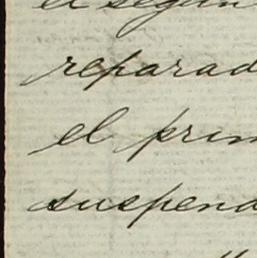 el segun
reparad
el prim
suspend